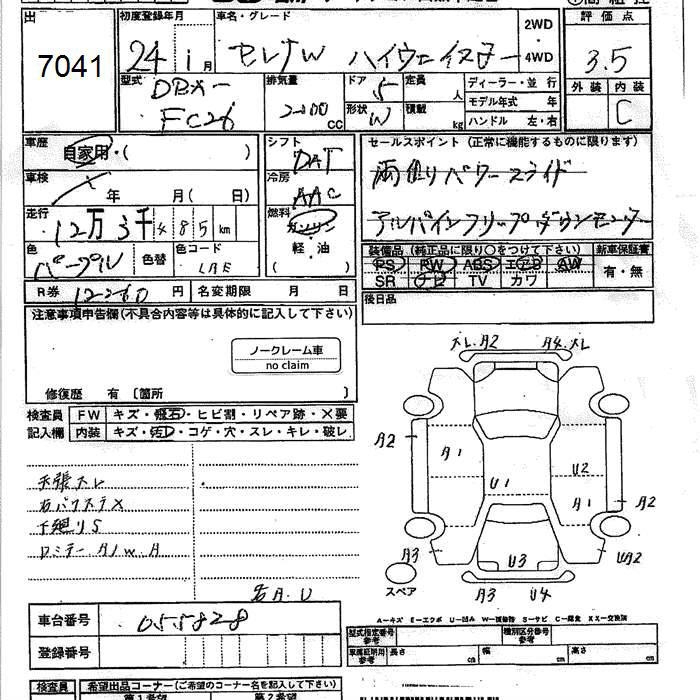 出
7041
初度登録年月
24 1月
車名・グレード
セレナW ハイウェイスター
2WD
・
4WD
評価点
3.5
外装 内装
C
型式
DBA-
FC26
排気量
2000
cc
ドア 5
形状 W
定員
人
積載
kg
ディーラー・並 行
モデル年式 年
ハンドル 左・右
車歴
自家用・( )
車検
年 月( 日)
走行
12万3千485km
色
パープル
色替
色コード
LAE
R券 12260 円
名変期限 月 日
シフト
DAT
冷房
AAC
燃料
ガソリン
軽・油
セールスポイント (正常に機能するものに限ります)
両側パワースライド
アルパインフリップダウンモニター
装備品 (純正品に限り○をつけて下さい)
PS PW ABS エアB AW
SR ナビ TV カワ
新車保証書
有・無
後日品
注意事項申告欄(不具合内容等は具体的に記入して下さい)
ノークレーム車
no claim
修復歴 有 〔箇所
検査員
記入欄
FW キズ・飛石・ヒビ割・リペア跡・X要
内装 キズ・汚レ・コゲ・穴・スレ・キレ・破レ
天張スレ
右バクステX
下廻りS
ロミラー A1 w.A
右A.U
スレ.A2 A4.スレ
A2
A1
U1
U2
A1
A2
A3
U3
UA2
スペア
A3 U4
A−キズ E−エクボ U−凹み W−補修跡 S−サビ C−腐食 XX−交換済
車台番号 055828
登録番号
型式指定番号
参考
種別区分番号
参考
車庫証明用
参考
長さ
cm
幅
cm
高さ
cm
検査員
希望出品コーナー(ご希望のコーナー名を記入して下さい)
第1希望 第2希望